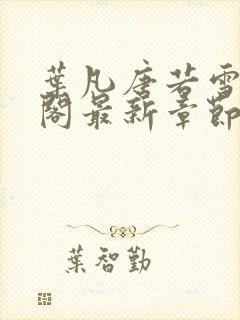 葉凡唐若雪
閣最新章節
葉智勤